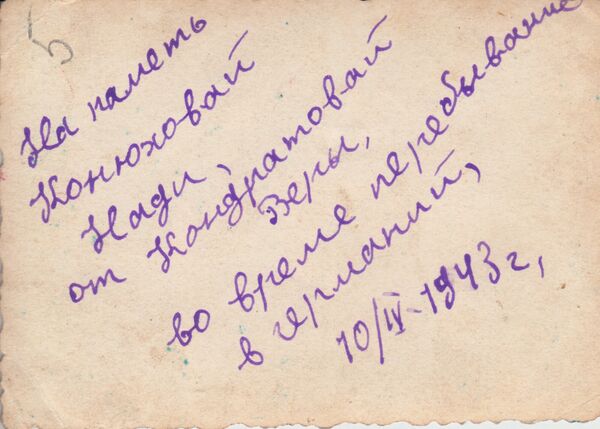 5
На паметь
Конюховай
Нади,
от Кондратовай
Веры,
во време перебывание
в германий,
10/IV-1943 г,